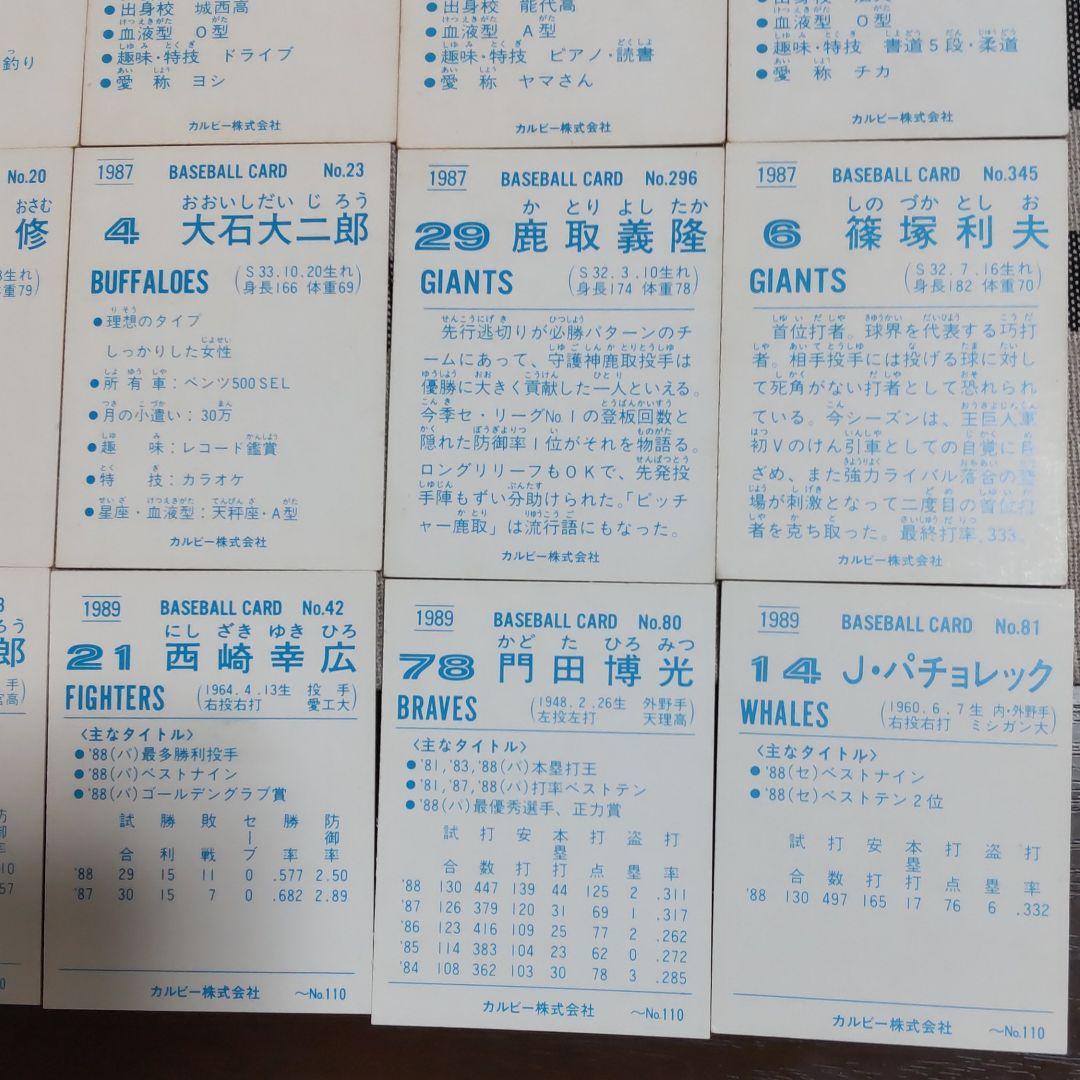 釣り
●出身校 城西高
●血液型 O型
●趣味・特技 ドライブ
●愛称 ヨシ
カルビー株式会社
●出身校 能代高
●血液型 A型
●趣味・特技 ピアノ・読書
●愛称 ヤマさん
カルビー株式会社
●血液型 O型
●趣味・特技 書道5段・柔道
●愛称 チカ
カルビー株式会社
No.20
おさむ
修
1987 BASEBALL CARD No.23
おおいしだいじろう
4 大石大二郎
BUFFALOES (S33.10.20生れ
身長166 体重69)
●理想のタイプ
しっかりした女性
●所有車:ベンツ500SEL
●月の小遣い:30万
●趣味:レコード鑑賞
●特技:カラオケ
●星座・血液型:天秤座・A型
カルビー株式会社
1987 BASEBALL CARD No.296
かとりよしたか
29 鹿取義隆
GIANTS (S32.3.10生れ
身長174 体重78)
先行逃切りが必勝パターンのチ
ームにあって、守護神鹿取投手は
優勝に大きく貢献した一人といえる。
今季セ・リーグNo.1の登板回数と
隠れた防御率1位がそれを物語る。
ロングリリーフもOKで、先発投
手陣もずい分助けられた。「ピッチ
ャー鹿取」は流行語にもなった。
カルビー株式会社
1987 BASEBALL CARD No.345
しのづかとしお
6 篠塚利夫
GIANTS (S32.7.16生れ
身長182 体重70)
首位打者。球界を代表する巧打
者。相手投手には投げる球に対し
て死角がない打者として恐れられ
ている。今シーズンは、王巨人軍
初Vのけん引車としての自覚に目
ざめ、また強力ライバル落合の登
場が刺激となって二度目の首位打
者を克ち取った。最終打率.333。
カルビー株式会社
1989 BASEBALL CARD No.42
にしざきゆきひろ
21 西崎幸広
FIGHTERS (1964.4.13生 投手
右投右打 愛工大)
〈主なタイトル〉
●'88(パ)最多勝利投手
●'88(パ)ベストナイン
●'88(パ)ゴールデングラブ賞
試合 勝利 敗戦 セーブ 勝率 防御率
'88 29 15 11 0 .577 2.50
'87 30 15 7 0 .682 2.89
カルビー株式会社 〜No.110
1989 BASEBALL CARD No.80
かどたひろみつ
78 門田博光
BRAVES (1948.2.26生 外野手
左投左打 天理高)
〈主なタイトル〉
●'81,'83,'88(パ)本塁打王
●'81,'87,'88(パ)打率ベストテン
●'88(パ)最優秀選手、正力賞
試合 打数 安打 本塁打 打点 盗塁 打率
'88 130 447 139 44 125 2 .311
'87 126 379 120 31 69 1 .317
'86 123 416 109 25 77 2 .262
'85 114 383 104 23 62 0 .272
'84 108 362 103 30 78 3 .285
カルビー株式会社 〜No.110
1989 BASEBALL CARD No.81
14 J・パチョレック
WHALES (1960.6.7生 内・外野手
右投右打 ミシガン大)
〈主なタイトル〉
●'88(セ)ベストナイン
●'88(セ)ベストテン2位
試合 打数 安打 本塁打 打点 盗塁 打率
'88 130 497 165 17 76 6 .332
カルビー株式会社 〜No.110